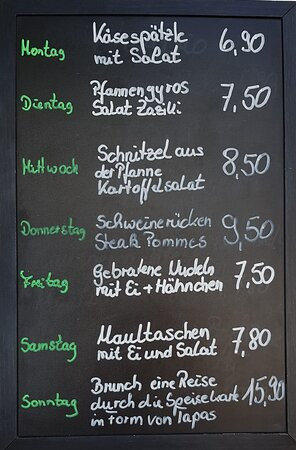 Montag Käsespätzle 6,90
mit Salat
Dientag Pfannengyros 7,50
Salat Zaziki
Mittwoch Schnitzel aus 8,50
der Pfanne
Kartoffelsalat
Donnerstag Schweinerücken 9,50
Steak Pommes
Freitag Gebratene Nudeln 7,50
mit Ei + Hähnchen
Samstag Maultaschen 7,80
mit Ei und Salat
Sonntag Brunch eine Reise 15,90
durch die Speisekarte
in Form von Tapas